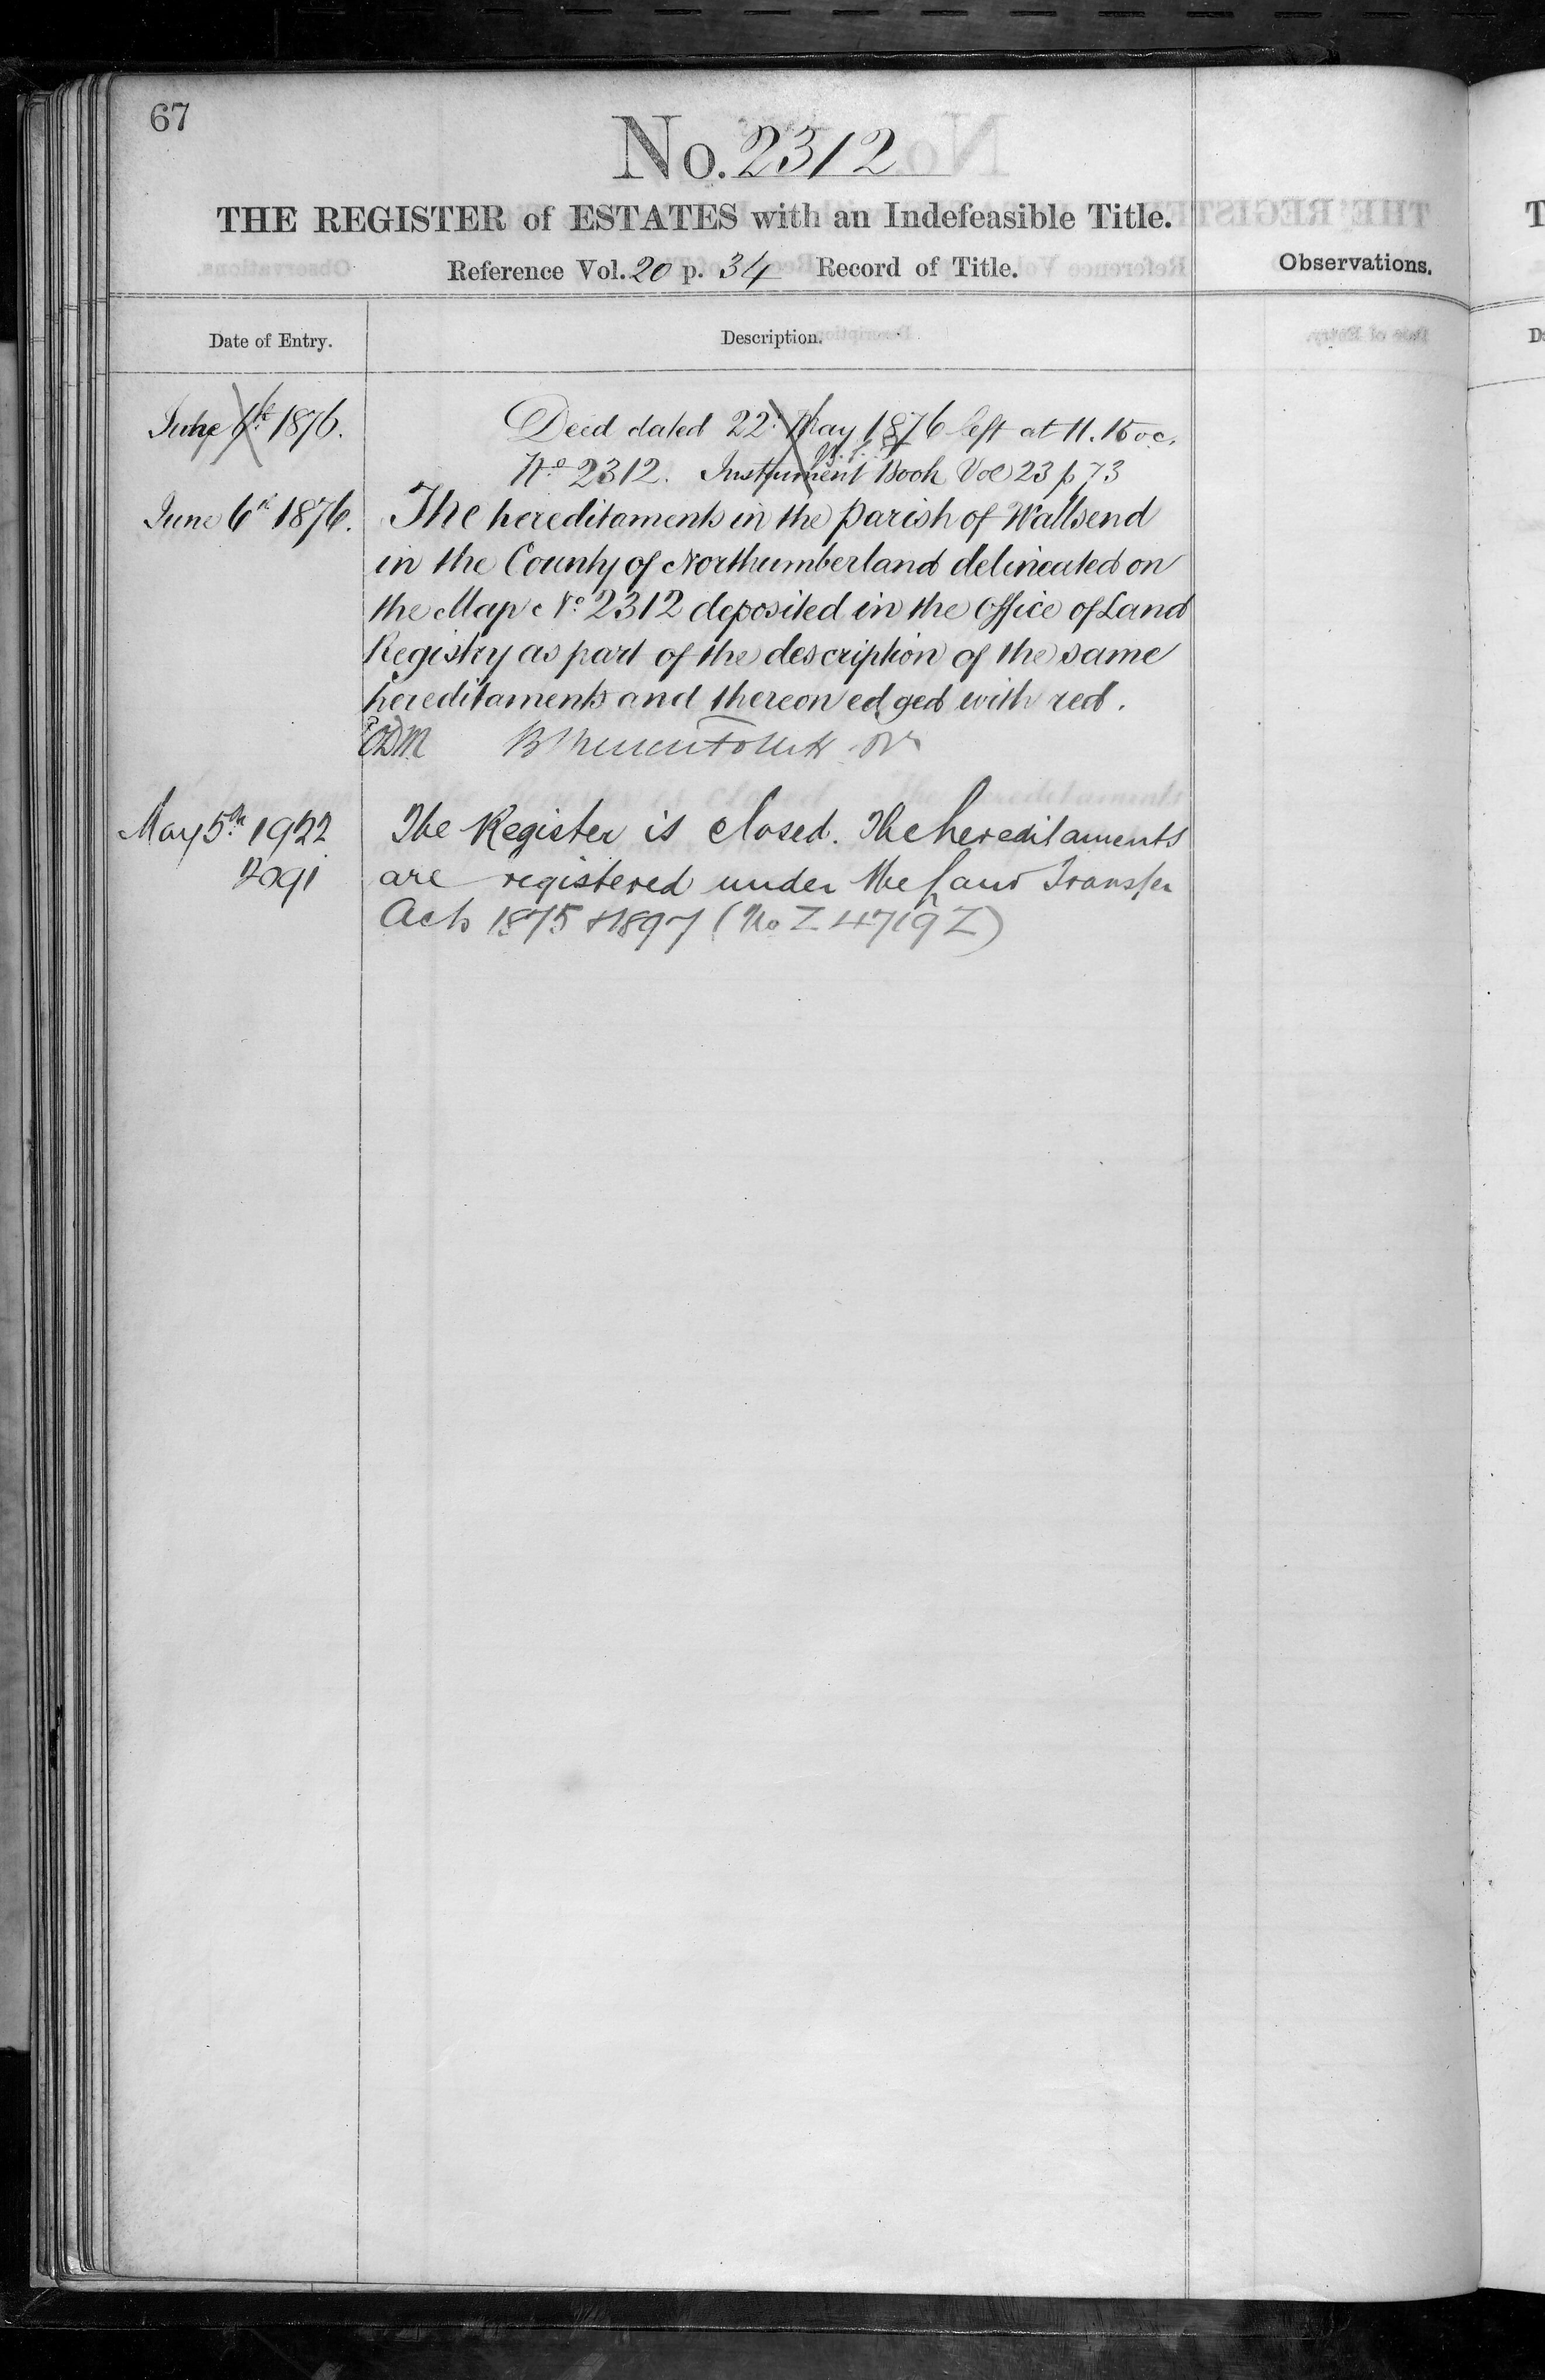 67
No. 2312
THE REGISTER of ESTATES with an Indefeasible Title.
Reference Vol. 20 p. 34 Record of Title.
Observations.
Date of Entry.
Description.
June 6th 1876. Deed dated 22d May 1876 left at 11.15 oc.
No 2312. Instrument Book Vol 23 p 73
June 6th 1876. The hereditaments in the Parish of Wallsend
in the County of Northumberland delineated on
the Map No 2312 deposited in the Office of Land
Registry as part of the description of the same
hereditaments and thereon edged with red.
May 5th 1922 The Register is closed. The hereditaments
are registered under the Land Transfer
Acts 1875 & 1897 (No Z 4719 Z)